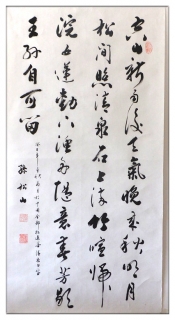 空山新雨後天氣晚來秋明月
松間照清泉石上流竹喧歸
浣女蓮動下漁舟隨意春芳歇
王孫自可留
孫松山